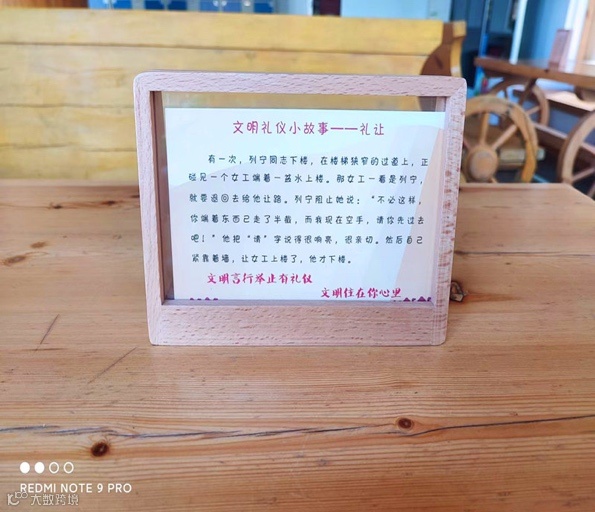 文明礼仪小故事——礼让
有一次，列宁同志下楼，在楼梯狭窄的过道上，正
碰见一个女工端着一盆水上楼。那女工一看是列宁，
就要退回去给他让路。列宁阻止她说：“不必这样，
你端着东西已走了半截，而我现在空手，请你先过去
吧！”他把“请”字说得很响亮，很亲切。然后自己
紧靠着墙，让女工上楼了，他才下楼。
文明言行举止有礼仪
文明住在你心里
REDMI NOTE 9 PRO
大数跨境